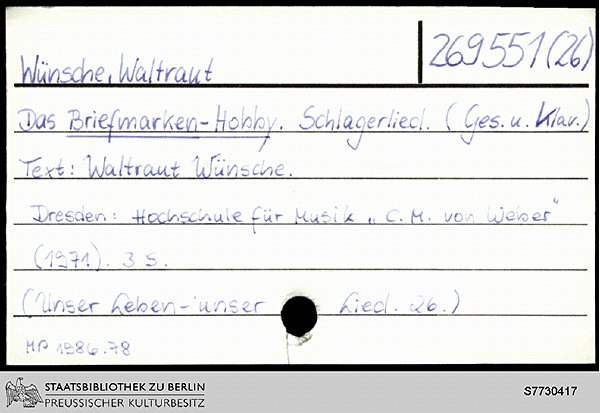 269551(26)
Wünsche, Waltraut
Das Briefmarken-Hobby. Schlagerlied. (Ges. u. Klav.)
Text: Waltraut Wünsche.
Dresden: Hochschule für Musik „C. M. von Weber"
(1971). 3 S.
(Unser Leben - unser Lied. 26.)
MP 1986.78
STAATSBIBLIOTHEK ZU BERLIN
PREUSSISCHER KULTURBESITZ
S7730417